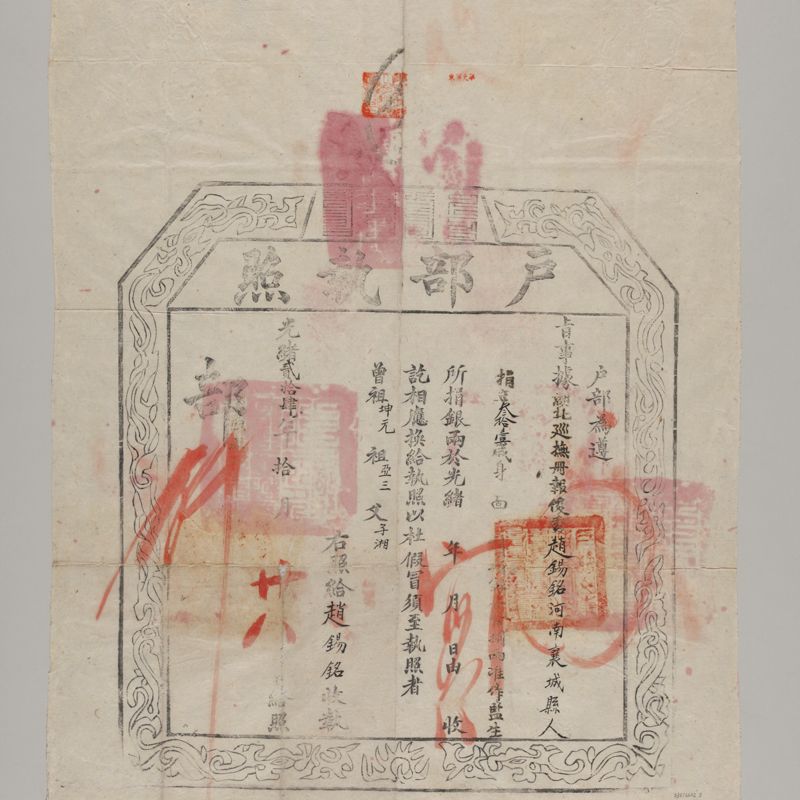 戶部執照
戶部為遵
旨事據湖北巡撫冊報俊秀趙錫銘河南襄城縣人
捐 叁拾壹歲身 面 兩准作監生
所捐銀兩於光緒 年 月 日由 收
訖相應換給執照以杜假冒須至執照者
曾祖坤元 祖亞三 父子湘
右照給趙錫銘收執
光緒貳拾肆年拾月廿八日給照
部